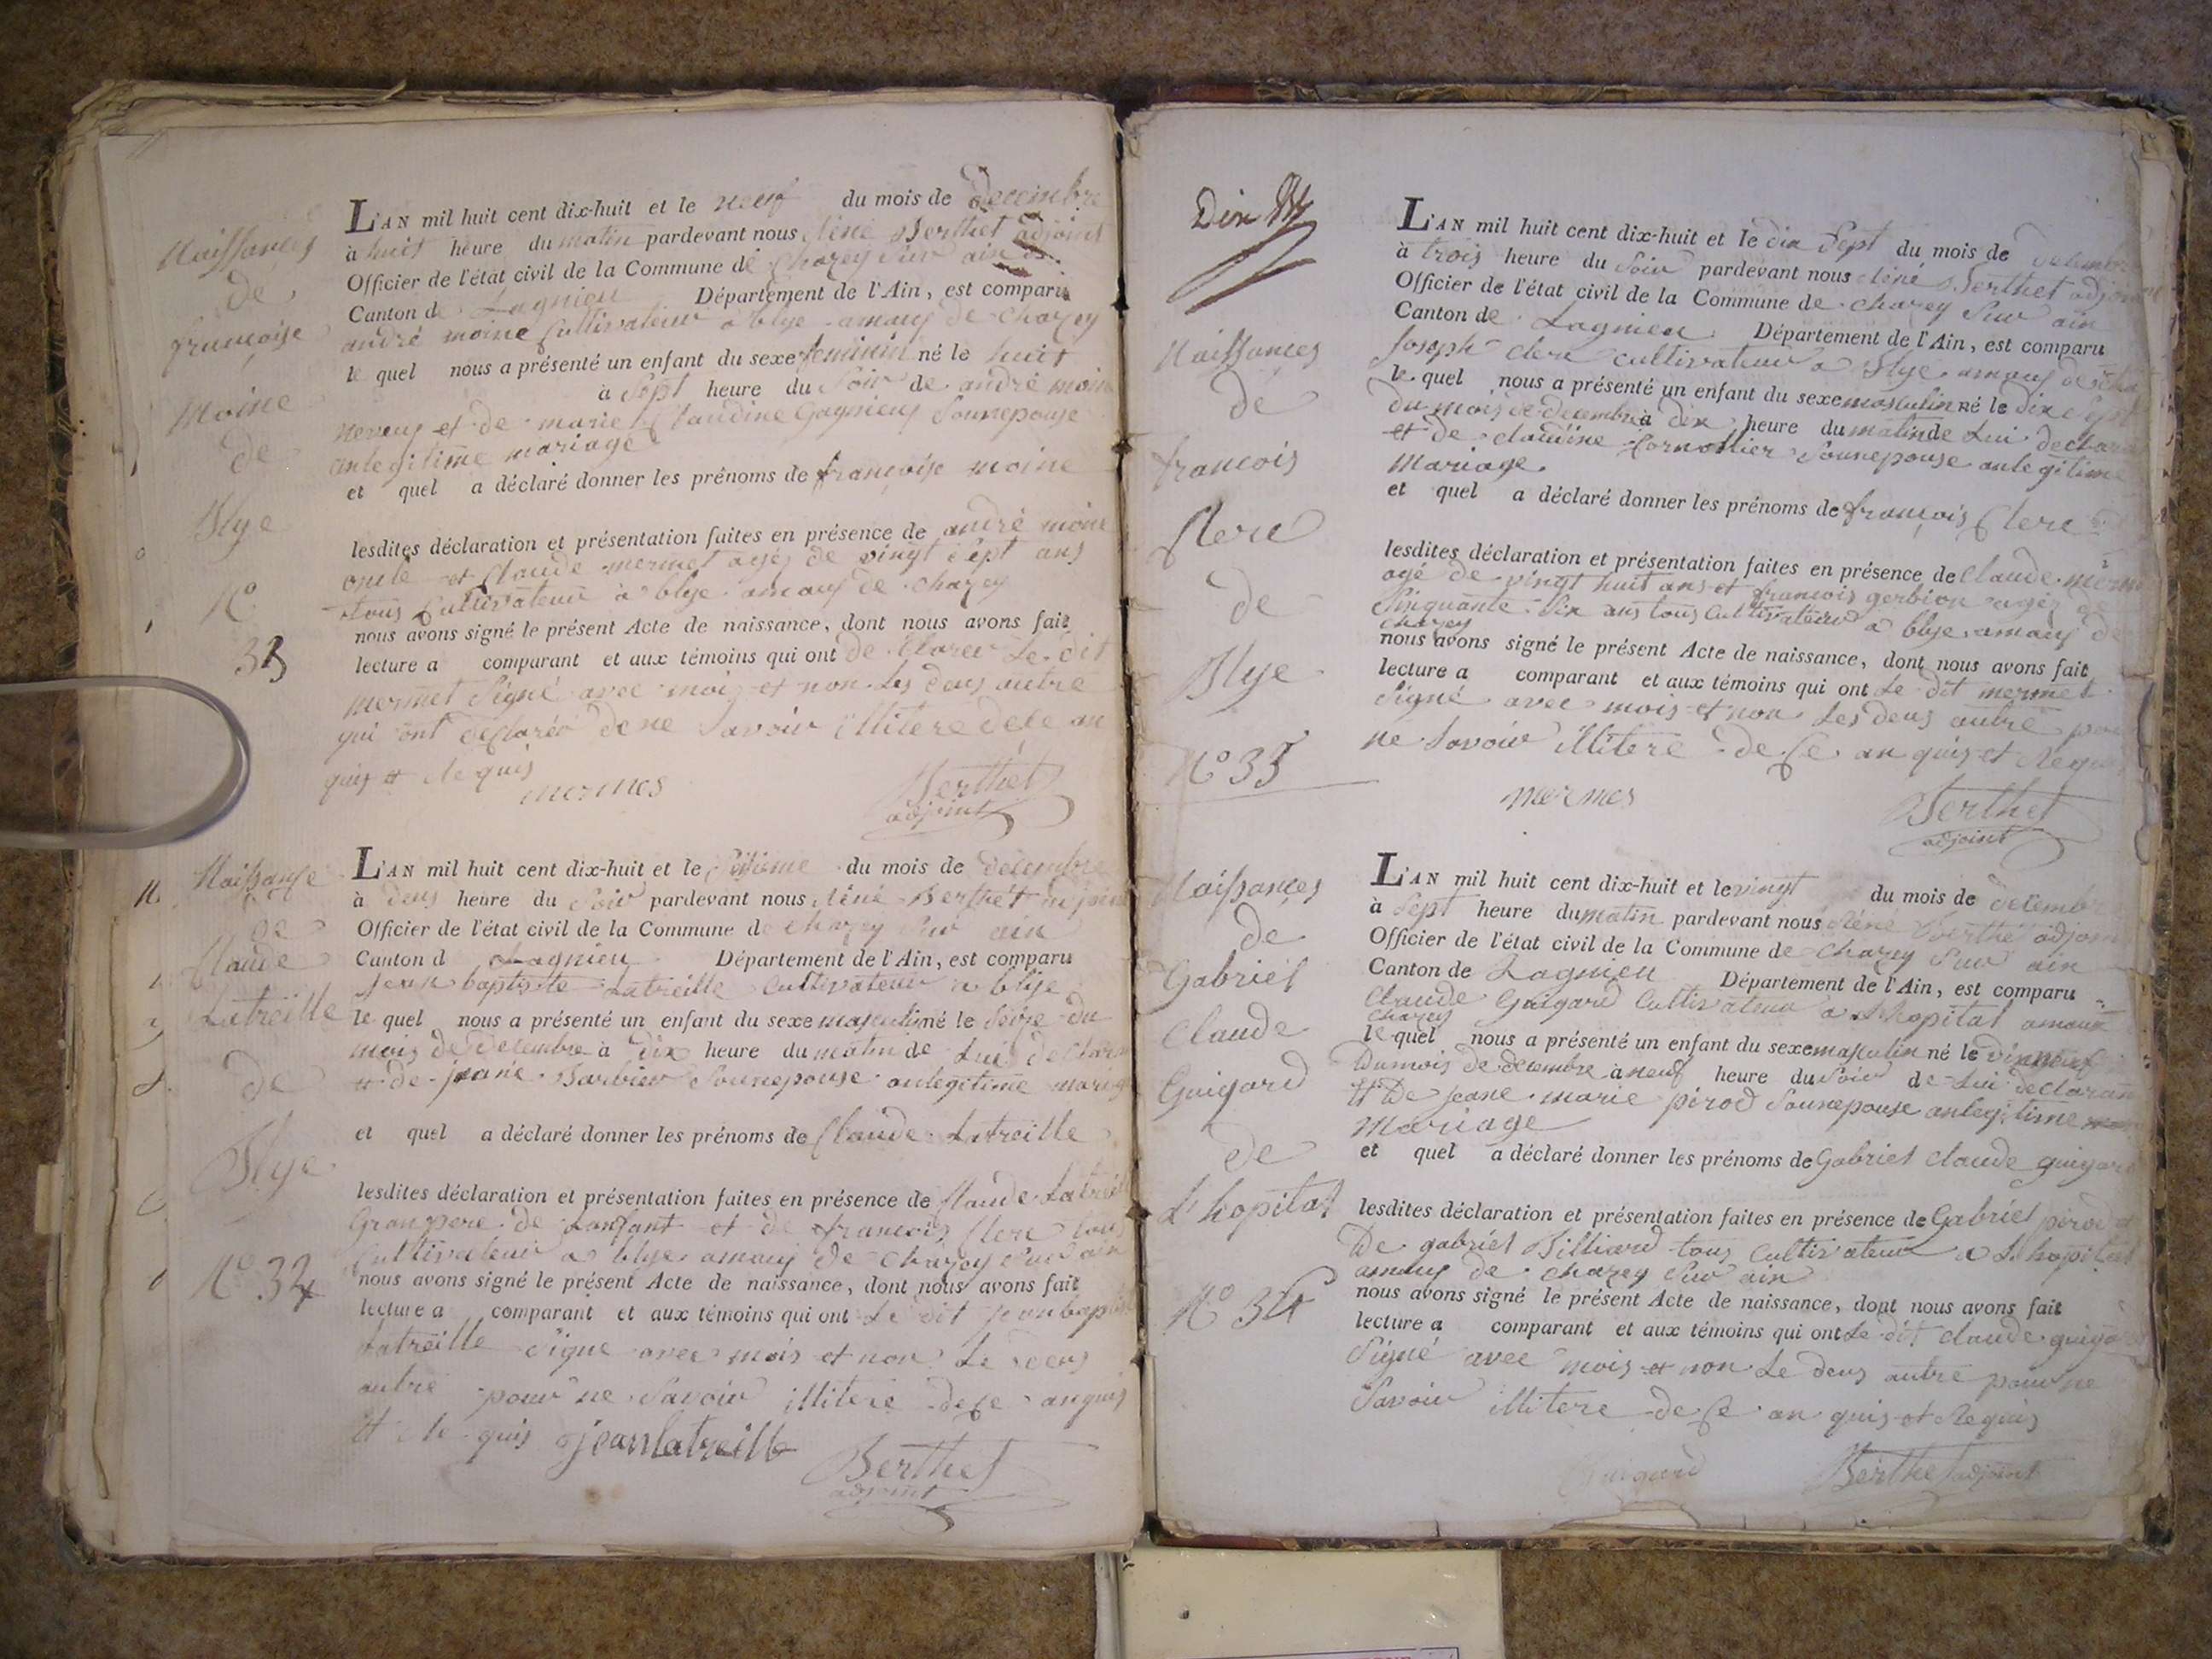 Naissances
de
françoise
Moine
de
Blye
N°
33
L'AN mil huit cent dix-huit et le neuf du mois de decembre
à huit heure du matin pardevant nous Réné Berthet adjoint
Officier de l'état civil de la Commune de Chazey Sur ain
Canton de Lagnieu Département de l'Ain, est comparu
andré moine Cultivateur a blye amauy de chazey
le quel nous a présenté un enfant du sexe feminin né le huit
à Sept heure du Soir de andré moine
neveuy et de marie Claudine Gagnieuy Sounepouse
anlegitime mariage
et quel a déclaré donner les prénoms de françoise moine
lesdites déclaration et présentation faites en présence de andré moine
oncle et Claude mermet agéz de vingt Sept ans
tous Cultivateur a blye amauy de chazey
nous avons signé le présent Acte de naissance, dont nous avons fait
lecture a comparant et aux témoins qui ont de Clarer Le dit
mermet Signé avec mois et non Les deus autre
qui ont declarér de ne Savoir illitere de ce an
quis et Re quis
mermes Berthet
adjoint
Naissanse
de
Claude
Latreille
de
Blye
N° 34
L'AN mil huit cent dix-huit et le du mois de decembre
à deus heure du Soir pardevant nous Réné Berthet adjoint
Officier de l'état civil de la Commune de chazey Sur ain
Canton d Lagnieu Département de l'Ain, est comparu
jean baptiste Latreille Cultivateur a blye
le quel nous a présenté un enfant du sexe masculin né le du
mois de decembre à dix heure du matin de Lui declar
et de jeane Barbier Sounepouse anlegitime mariage
et quel a déclaré donner les prénoms de Claude Latreille
lesdites déclaration et présentation faites en présence de Claude Latreille
Granpere de Lanfant et de francois Clerc tous
Cultivateur a blye amauy de Chazey Sur ain
nous avons signé le présent Acte de naissance, dont nous avons fait
lecture a comparant et aux témoins qui ont Le dit jean bapti
Latreille Signe avec mois et non Le deus
autre pour ne Savoir illitere de ce anquis
et Re quis jeanlatreille
Berthet
adjoint
Dix
Naissances
de
francois
Clerc
de
Blye
N° 35
L'AN mil huit cent dix-huit et le dix Sept du mois de decembre
à trois heure du Soir pardevant nous Réné Berthet adjoint
Officier de l'état civil de la Commune de chazey Sur ain
Canton de Lagnieu Département de l'Ain, est comparu
Joseph clerc cultivateur a Blye amauy de cha
le quel nous a présenté un enfant du sexe masculin né le dixe Sept
du mois de decembre à dix heure du matin de Lui declara
et de claudine Cornollier Sounepouse anlegitime
Mariage
et quel a déclaré donner les prénoms de françois Clerc
lesdites déclaration et présentation faites en présence de Claude merm
agé de vingt huit ans et francois gerbion agéz de
Sinquante Six ans tous Cultivateur a blye amauy de
chazey
nous avons signé le présent Acte de naissance, dont nous avons fait
lecture a comparant et aux témoins qui ont Le dit mermet
Signé avec mois et non Les deus autre pour
ne Savoir illitere de Ce an quis et Requis
mermes Berthet
adjoint
Naissances
de
Gabriel
Claude
Guigard
de
L'hopital
N° 36
L'AN mil huit cent dix-huit et le vingt du mois de decembr
à Sept heure du matin pardevant nous Réné Berthé adjoin
Officier de l'état civil de la Commune de Chazey Sur ain
Canton de Lagnieu Département de l'Ain, est comparu
Claude Guigard Cultivateur a Lhopital amauy
chazey
le quel nous a présenté un enfant du sexe masculin né le dixneuf
Dumois de decembre à neuf heure du Soir de Lui declaran
et De jeane marie pirod Sounepouse anlegitime
Mariage
et quel a déclaré donner les prénoms de Gabriel claude guigard
lesdites déclaration et présentation faites en présence de Gabriel pirod et
De gabriel Billiard tous Cultivateur a Lhopital
amauy de chazey Sur ain
nous avons signé le présent Acte de naissance, dont nous avons fait
lecture a comparant et aux témoins qui ont Le dit claude guigard
Signé avec mois et non Le deus autre pour ne
Savoir illitere de Ce an quis et Requis
Guigard Berthet adjoint